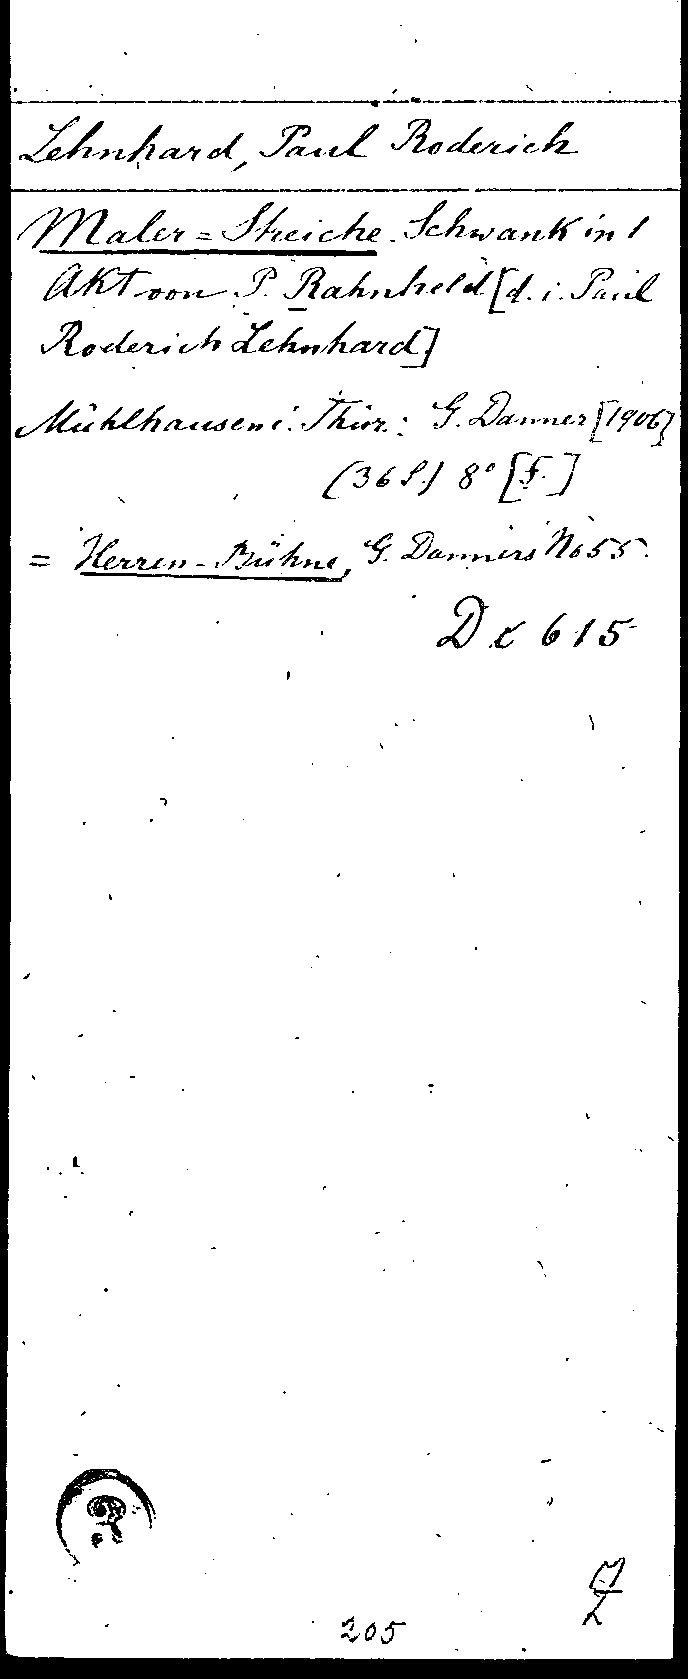 Lehnhard, Paul Roderich
Maler=Streiche. Schwank in 1
Akt von P. Rahnheld [d. i. Paul
Roderich Lehnhard]
Mühlhausen i. Thür.: G. Danner [1906]
(36 S.) 8° [F.]
= Herren-Bühne, G. Danners No 55.
D x 615
205